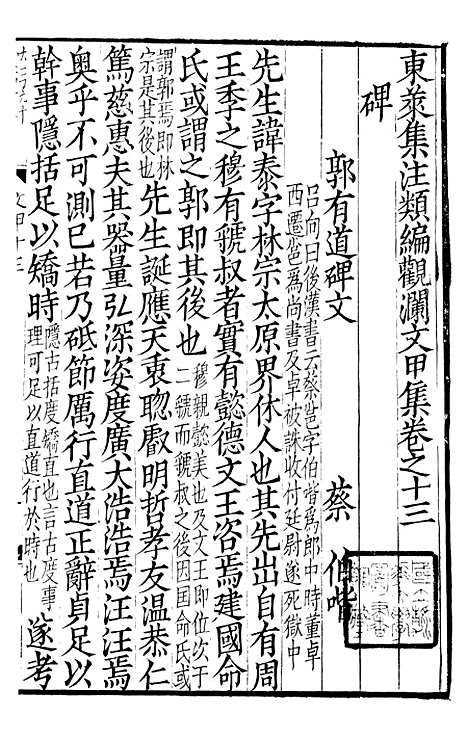 東萊集注類編觀瀾文甲集卷之十三
碑
郭有道碑文　蔡　伯喈
呂向曰後漢書云蔡邕字伯喈爲郎中時董卓
西遷邕爲尚書及卓被誅收付廷尉遂死獄中
先生諱泰字林宗太原界休人也其先出自有周
王季之穆有虢叔者實有懿德文王咨焉建國命
氏或謂之郭即其後也
穆親懿美也及文王即位次于
二虢而虢叔之後因国命氏或
謂郭焉即林
宗是其後也
先生誕應天衷聰叡明哲孝友温恭仁
篤慈惠夫其器量弘深姿度廣大浩浩焉汪汪焉
奥乎不可測已若乃砥節厲行直道正辭貞足以
幹事隱括足以矯時
隱古括度矯直也言古度事
理可足以直道行於時也
遂考
文甲十三